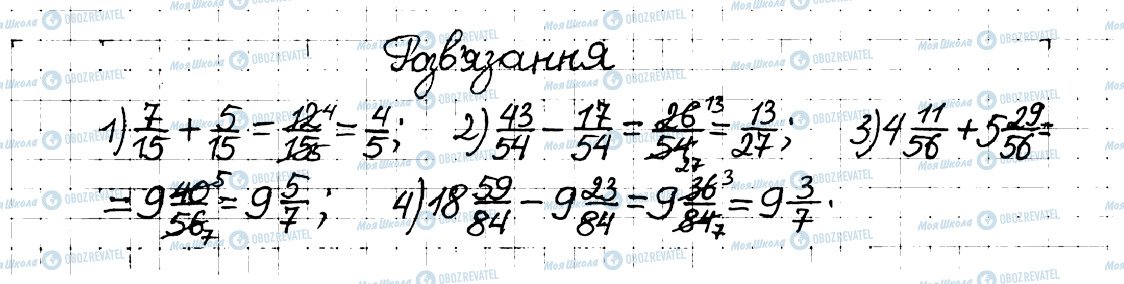 Розв'язання
1) 7/15 + 5/15 = 12⁴/15₅ = 4/5; 2) 43/54 − 17/54 = 26¹³/54₂₇ = 13/27; 3) 4 11/56 + 5 29/56 =
= 9 40⁵/56₇ = 9 5/7; 4) 18 59/84 − 9 23/84 = 9 36³/84₇ = 9 3/7.